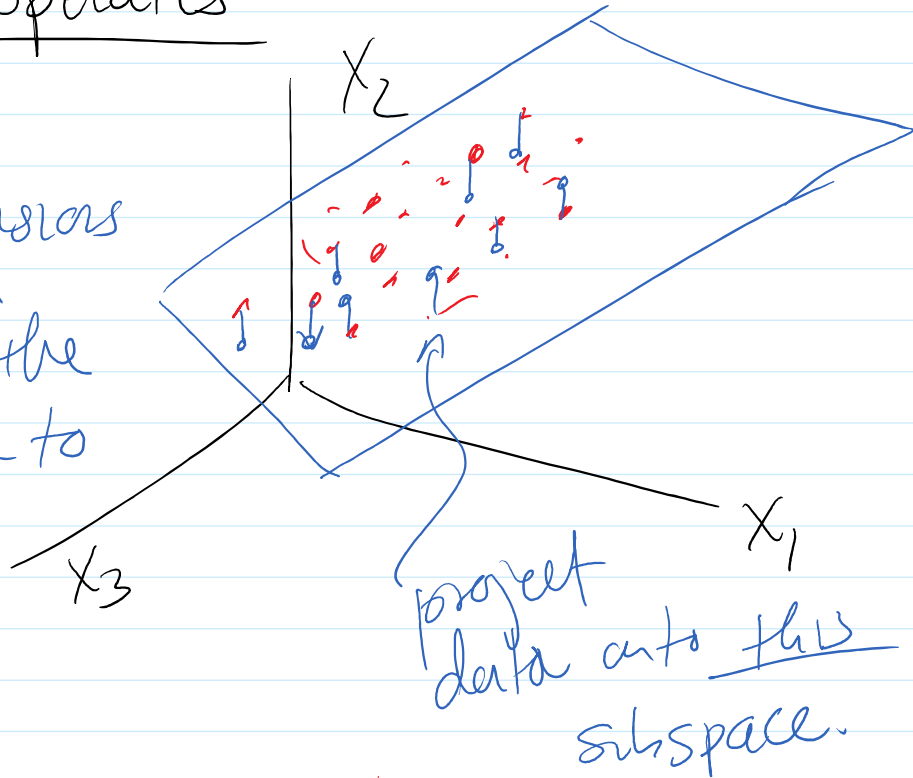 X2
the
to
X3
X1
project
data onto this
subspace.